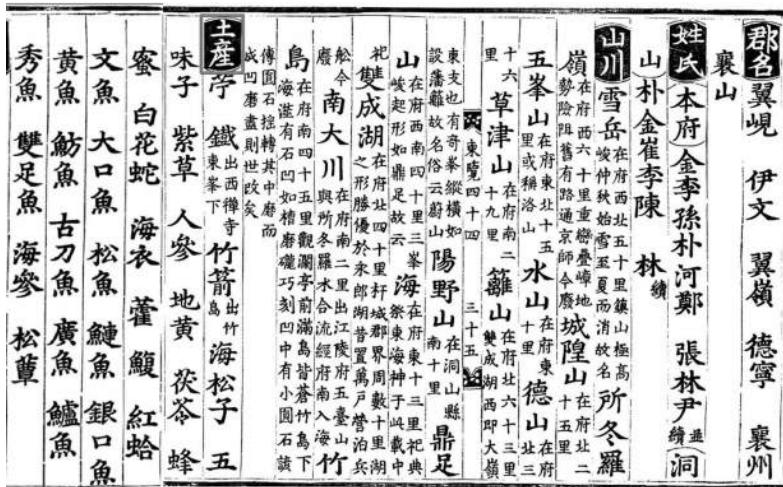 郡名 翼峴 伊文 翼嶺 德寧 襄州
襄山
姓氏 本府 金李孫朴河鄭 張林尹 並續 洞
山 朴金崔李陳 林 續
山川 雪岳 在府西北五十里鎮山極高峻仲秋始雪至夏而消故名 所冬羅
嶺 在府西六十里重巒疊嶂地勢險阻舊有路通京師今廢 城隍山 在府北二十五里
五峯山 在府東北十五里或稱洛山 水山 在府東十里 德山 在府北三
十六里 草津山 在府南二十九里 籬山 在府北六十三里雙成湖西即大嶺
東覽四十四 三十五
東支也有奇峯縱橫如設藩籬故名俗云蔚山 陽野山 在洞山縣南十里 鼎足
山 在府西南四十里三峯峻起形如鼎足故云 海 在府東十三里祀典祭東海神于此載中
祀 雙成湖 在府北四十里杆城郡界周數十里湖之形勝優於永郎湖昔置萬戶營泊兵
舩今廢 南大川 在府南二里出江陵府五臺山與所冬羅水合流經府南入海 竹
島 在府南四十五里觀瀾亭前滿島皆蒼竹島下海滋有石凹如槽磨礲巧刻凹中有小圓石諺
傳圓石捴轉其中磨而成凹磨盡則世改矣
土産 苧 鐵 出西禪寺東峯下 竹箭 出竹島 海松子 五
味子 紫草 人參 地黄 茯苓 蜂
蜜 白花蛇 海衣 藿 鰒 紅蛤
文魚 大口魚 松魚 鰱魚 銀口魚
黄魚 魴魚 古刀魚 廣魚 鱸魚
秀魚 雙足魚 海參 松蕈